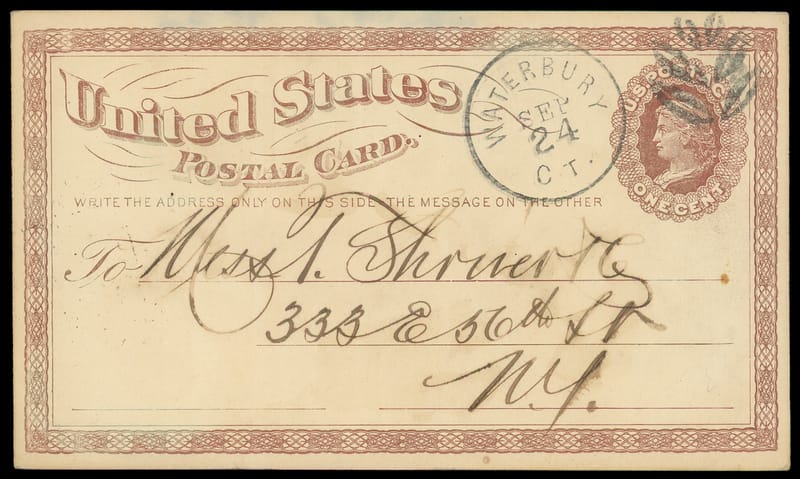 United States
POSTAL CARD.
WATERBURY
SEP
24
CT.
U.S. POSTAGE
ONE CENT
WRITE THE ADDRESS ONLY ON THIS SIDE - THE MESSAGE ON THE OTHER
To Mess I. Shriver & Co
333 E 56th St
N.Y.